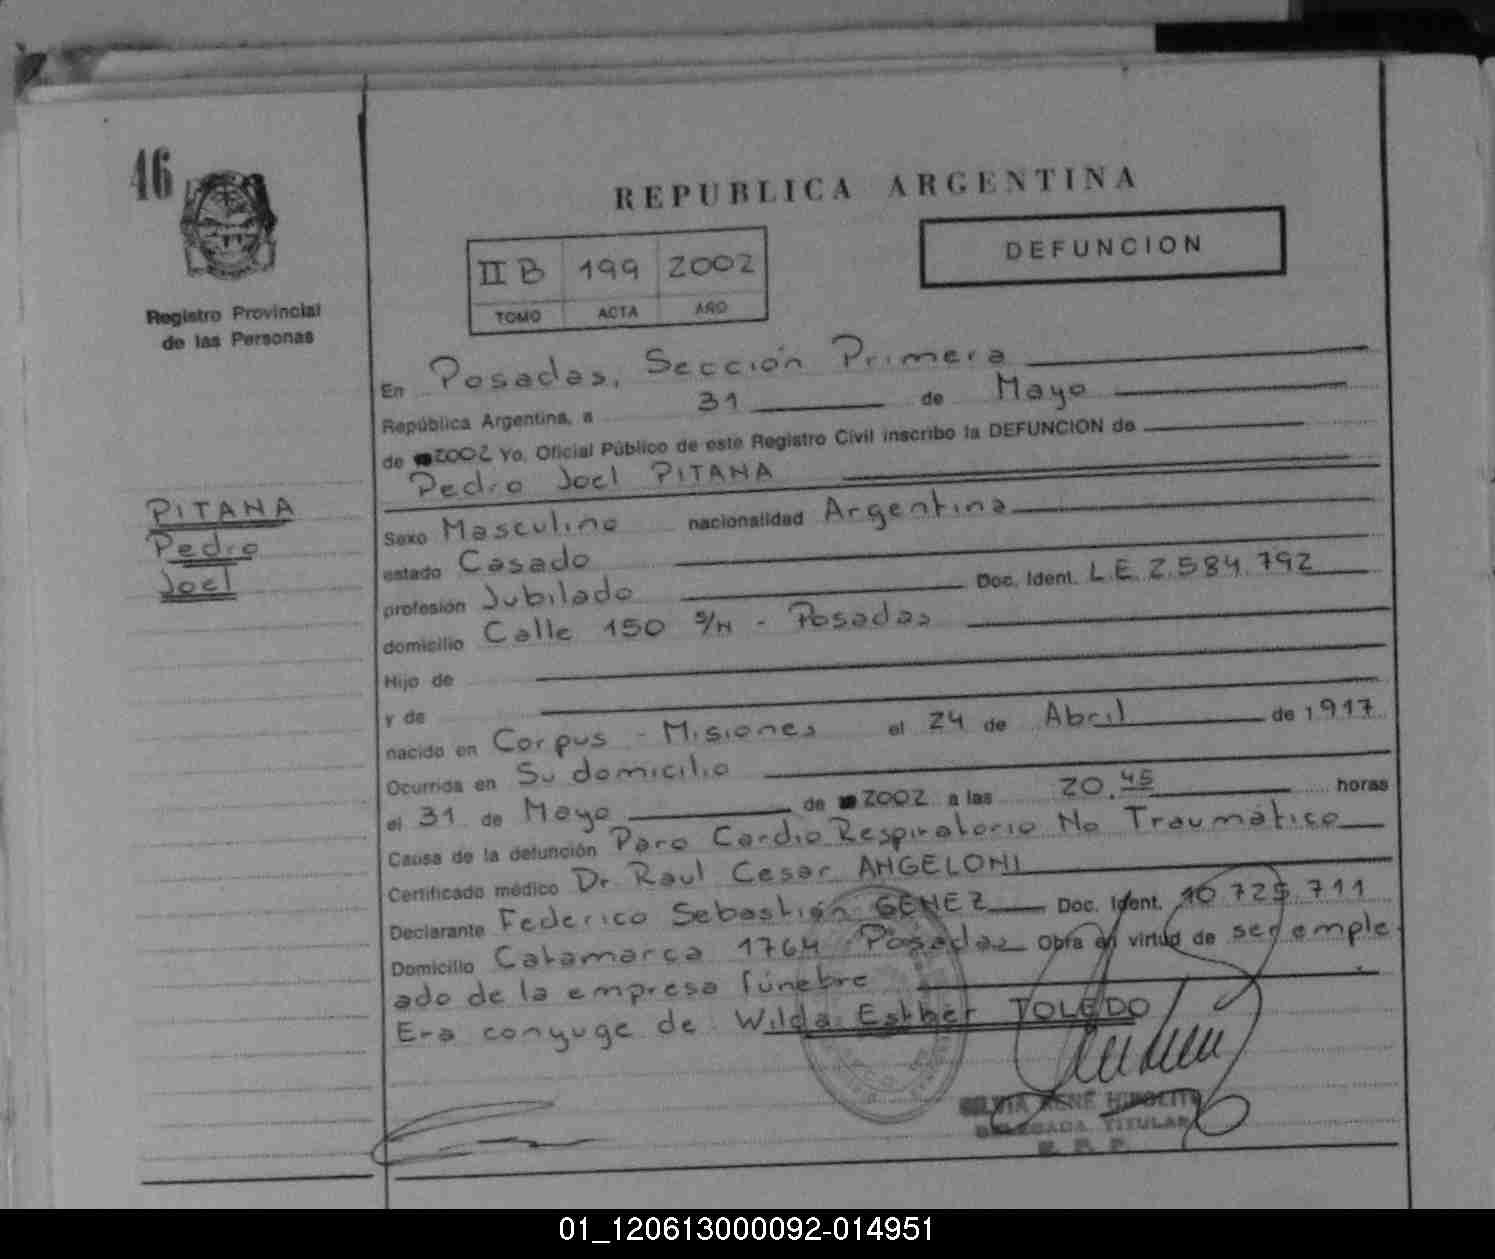 46
REPUBLICA ARGENTINA
DEFUNCION
II B 199 2002
TOMO ACTA AÑO
Registro Provincial
de las Personas
En Posadas, Sección Primera
República Argentina, a 31 de Mayo
de 2002 Yo, Oficial Público de este Registro Civil inscribo la DEFUNCION de
Pedro Joel PITANA
PITANA
Pedro
Joel
Sexo Masculino nacionalidad Argentina
estado Casado
profesión Jubilado Doc. Ident. L.E. 2.584.792
domicilio Calle 150 S/N - Posadas
Hijo de
y de
nacido en Corpus - Misiones el 24 de Abril de 1917
Ocurrida en Su domicilio
el 31 de Mayo de 2002 a las 20.45 horas
Causa de la defunción Paro CardioRespiratorio No Traumático
Certificado médico Dr. Raul Cesar ANGELONI
Declarante Federico Sebastián GENEZ Doc. Ident. 10.725.711
Domicilio Catamarca 1764 Posadas Obra en virtud de ser emple
ado de la empresa fúnebre
Era conyuge de Wilda Esther TOLEDO
SILVIA RENE HIPOLITO
DELEGADA TITULAR
R. P.
01_120613000092-014951